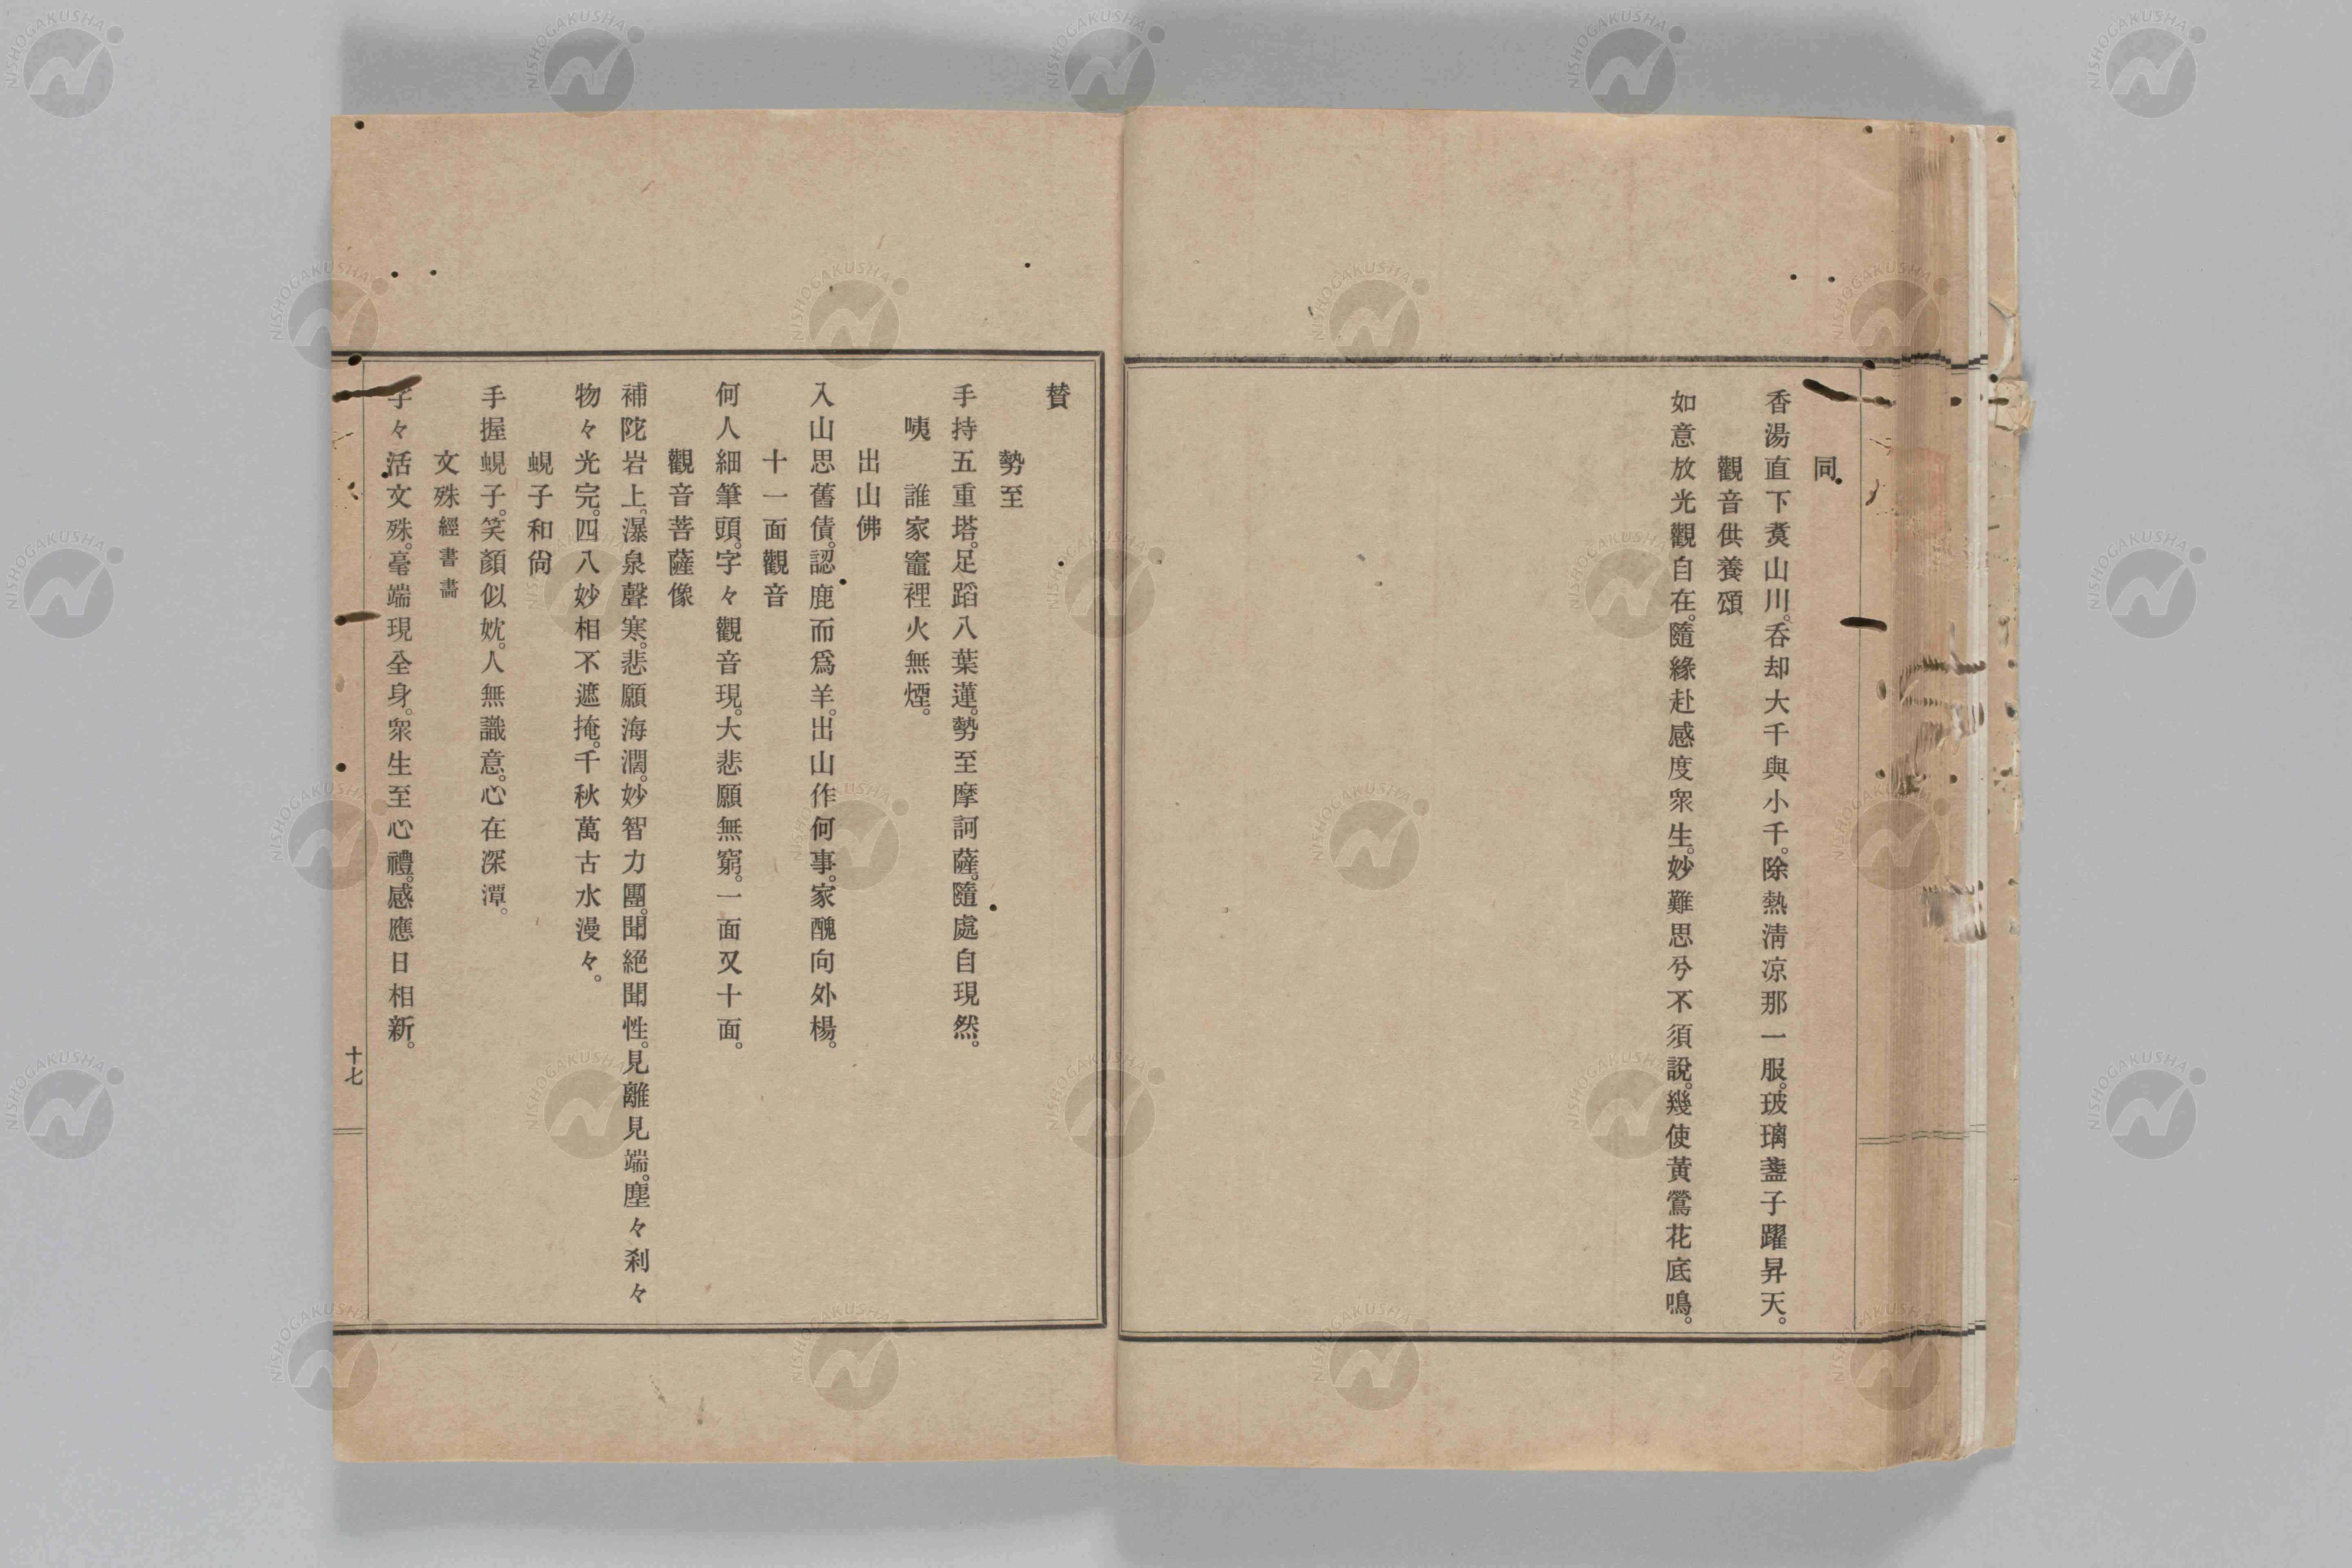 同
香湯直下煑山川。呑却大千與小千。除熱淸凉那一服。玻璃盞子躍昇天。
觀音供養頌
如意放光觀自在。隨緣赴感度衆生。妙難思兮不須說。幾使黃鶯花底鳴。
賛
勢至
手持五重塔。足蹈八葉蓮。勢至摩訶薩。隨處自現然。
咦　誰家竈裡火無煙。
出山佛
入山思舊債。認鹿而爲羊。出山作何事。家醜向外楊。
十一面觀音
何人細筆頭。字々觀音現。大悲願無窮。一面又十面。
觀音菩薩像
補陀岩上。瀑泉聲寒。悲願海濶。妙智力團。聞絕聞性。見離見端。塵々刹々
物々光完。四八妙相不遮掩。千秋萬古水漫々。
蜆子和尙
手握蜆子。笑顏似妉。人無識意。心在深潭。
文殊經書畵
字々活文殊。毫端現全身。衆生至心禮。感應日相新。
十七
NISHOGAKUSHA